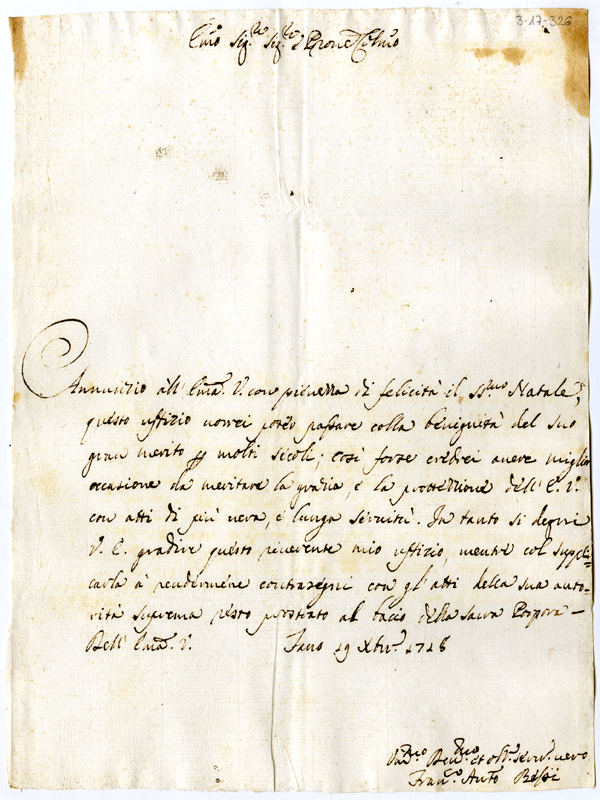 3-17-326
Emo Sig.re Sig.re e Prone Colmo
Annunzio all' Emza. V. con pienezza di felicità il SSmo Natale,
questo uffizio vorrei poter passare colla benignità del suo
gran merito per molti secoli; così forse crederei avere miglior
occasione da meritare la grazia, e la protezzione dell' E. V.
con atti di più vera, e lunga servitù. In tanto si degni
V. E. gradire questo riverente mio uffizio, mentre col suppli=
carla à rendermene contrasegni con gl' atti della sua auto=
rità suprema resto prostrato al bacio della sacra Porpora
Dell' Emza. V. Fano 19 Xbre. 1718
Devmo et obl. serv. vero
Franco Anto